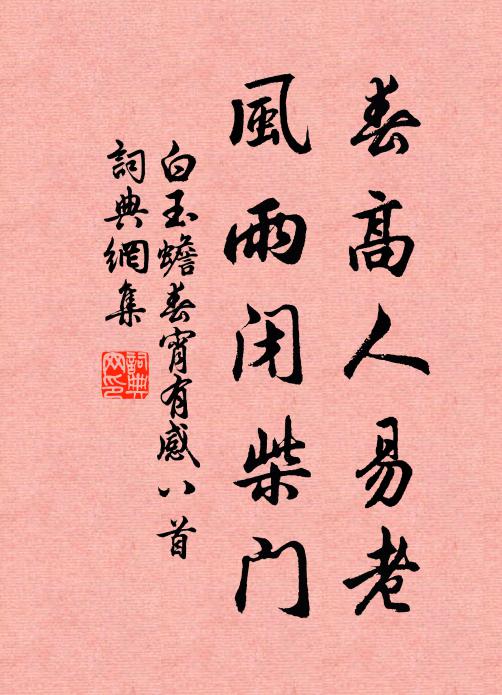 春高人易老
風雨闭柴门
白玉蟾春宵有感八首
詞典網集
詞典
网印